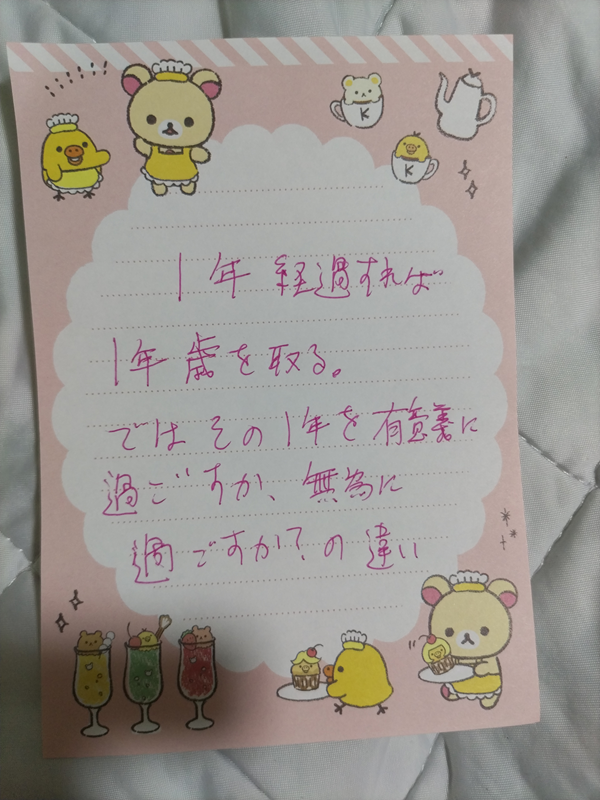 K
K
1年経過すれば
1年歳を取る。
ではその1年を有意義に
過ごすか、無為に
過ごすか?の違い